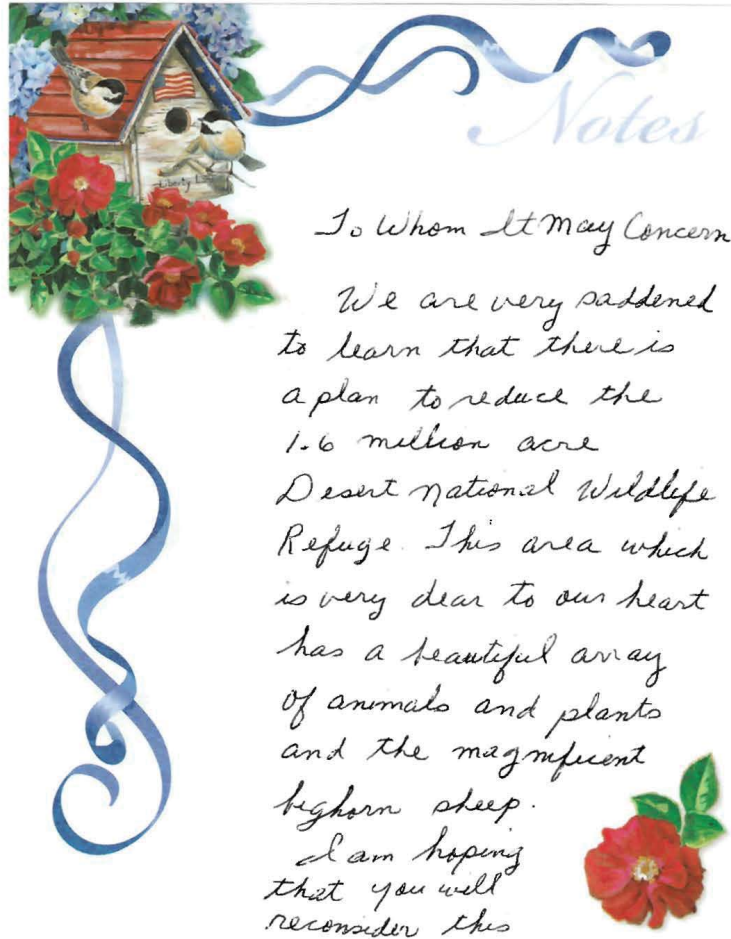 Notes
Liberty
To Whom It May Concern
We are very saddened
to learn that there is
a plan to reduce the
1.6 million acre
Desert National Wildlife
Refuge. This area which
is very dear to our heart
has a beautiful array
of animals and plants
and the magnificent
bighorn sheep.
I am hoping
that you will
reconsider this